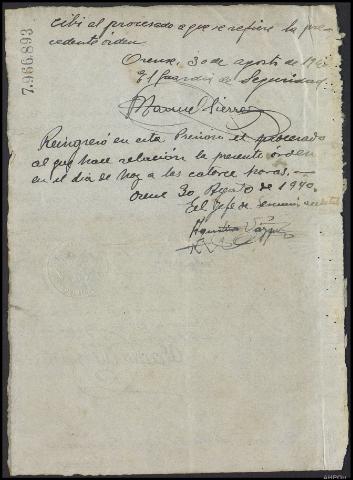 7.966.893
cibí al procesado a que se refiere la pre-
cedente orden.
Orense, 30 de agosto de 1940
El Guardia de Seguridad.
Manuel Sierra
Reingresó en esta Prisión el procesado
al que hace relación la presente orden
en el día de hoy a las catorce horas.—
Orense 30 Agosto de 1940.
El Jefe de servicio
AHPOu